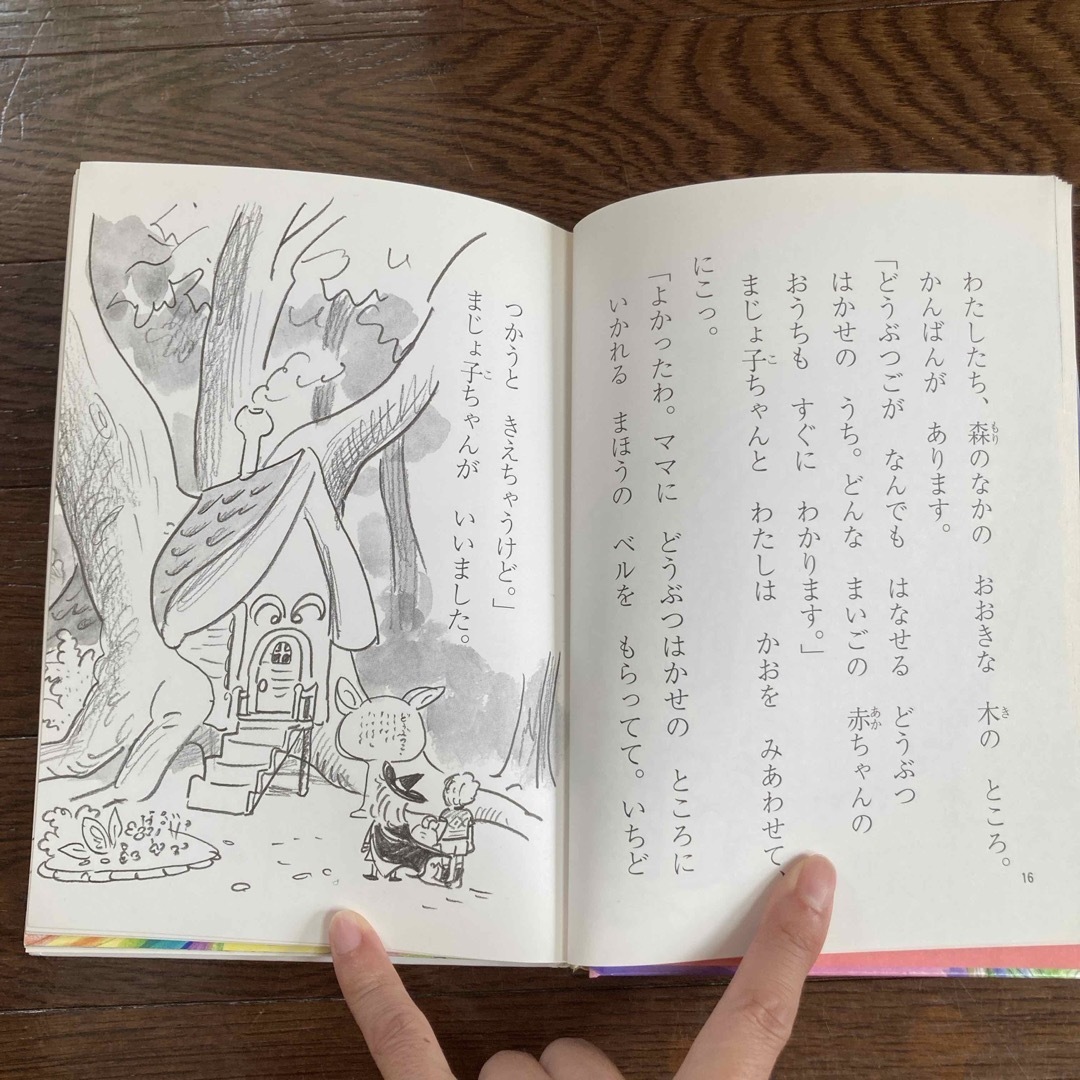 わたしたち、森のなかの　おおきな　木の　ところ。
かんばんが　あります。
「どうぶつごが　なんでも　はなせる　どうぶつ
はかせの　うち。どんな　まいごの　赤ちゃんの
おうちも　すぐに　わかります。」
まじょ子ちゃんと　わたしは　かおを　みあわせて、
にこっ。
「よかったわ。ママに　どうぶつはかせの　ところに
いかれる　まほうの　ベルを　もらってて。いちど
16
つかうと　きえちゃうけど。」
まじょ子ちゃんが　いいました。